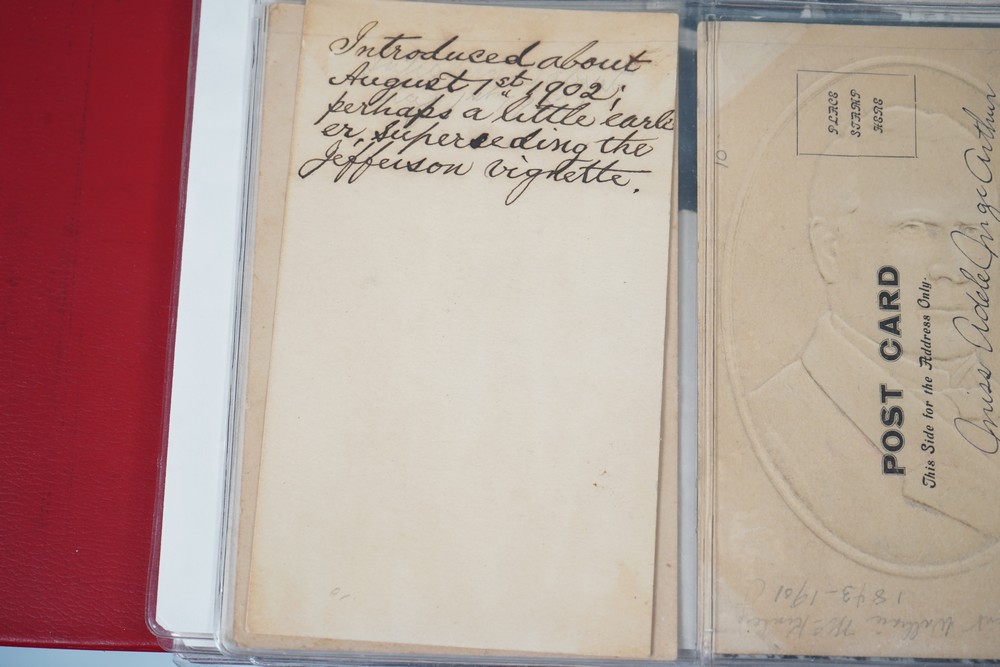 Introduced about
August 1st, 1902;
perhaps a little earli
er, superseding the
Jefferson vignette.
10
PLACE
STAMP
HERE
POST CARD
This Side for the Address Only.
Miss Adele Inge Arthur
William McKinley
1843-1901